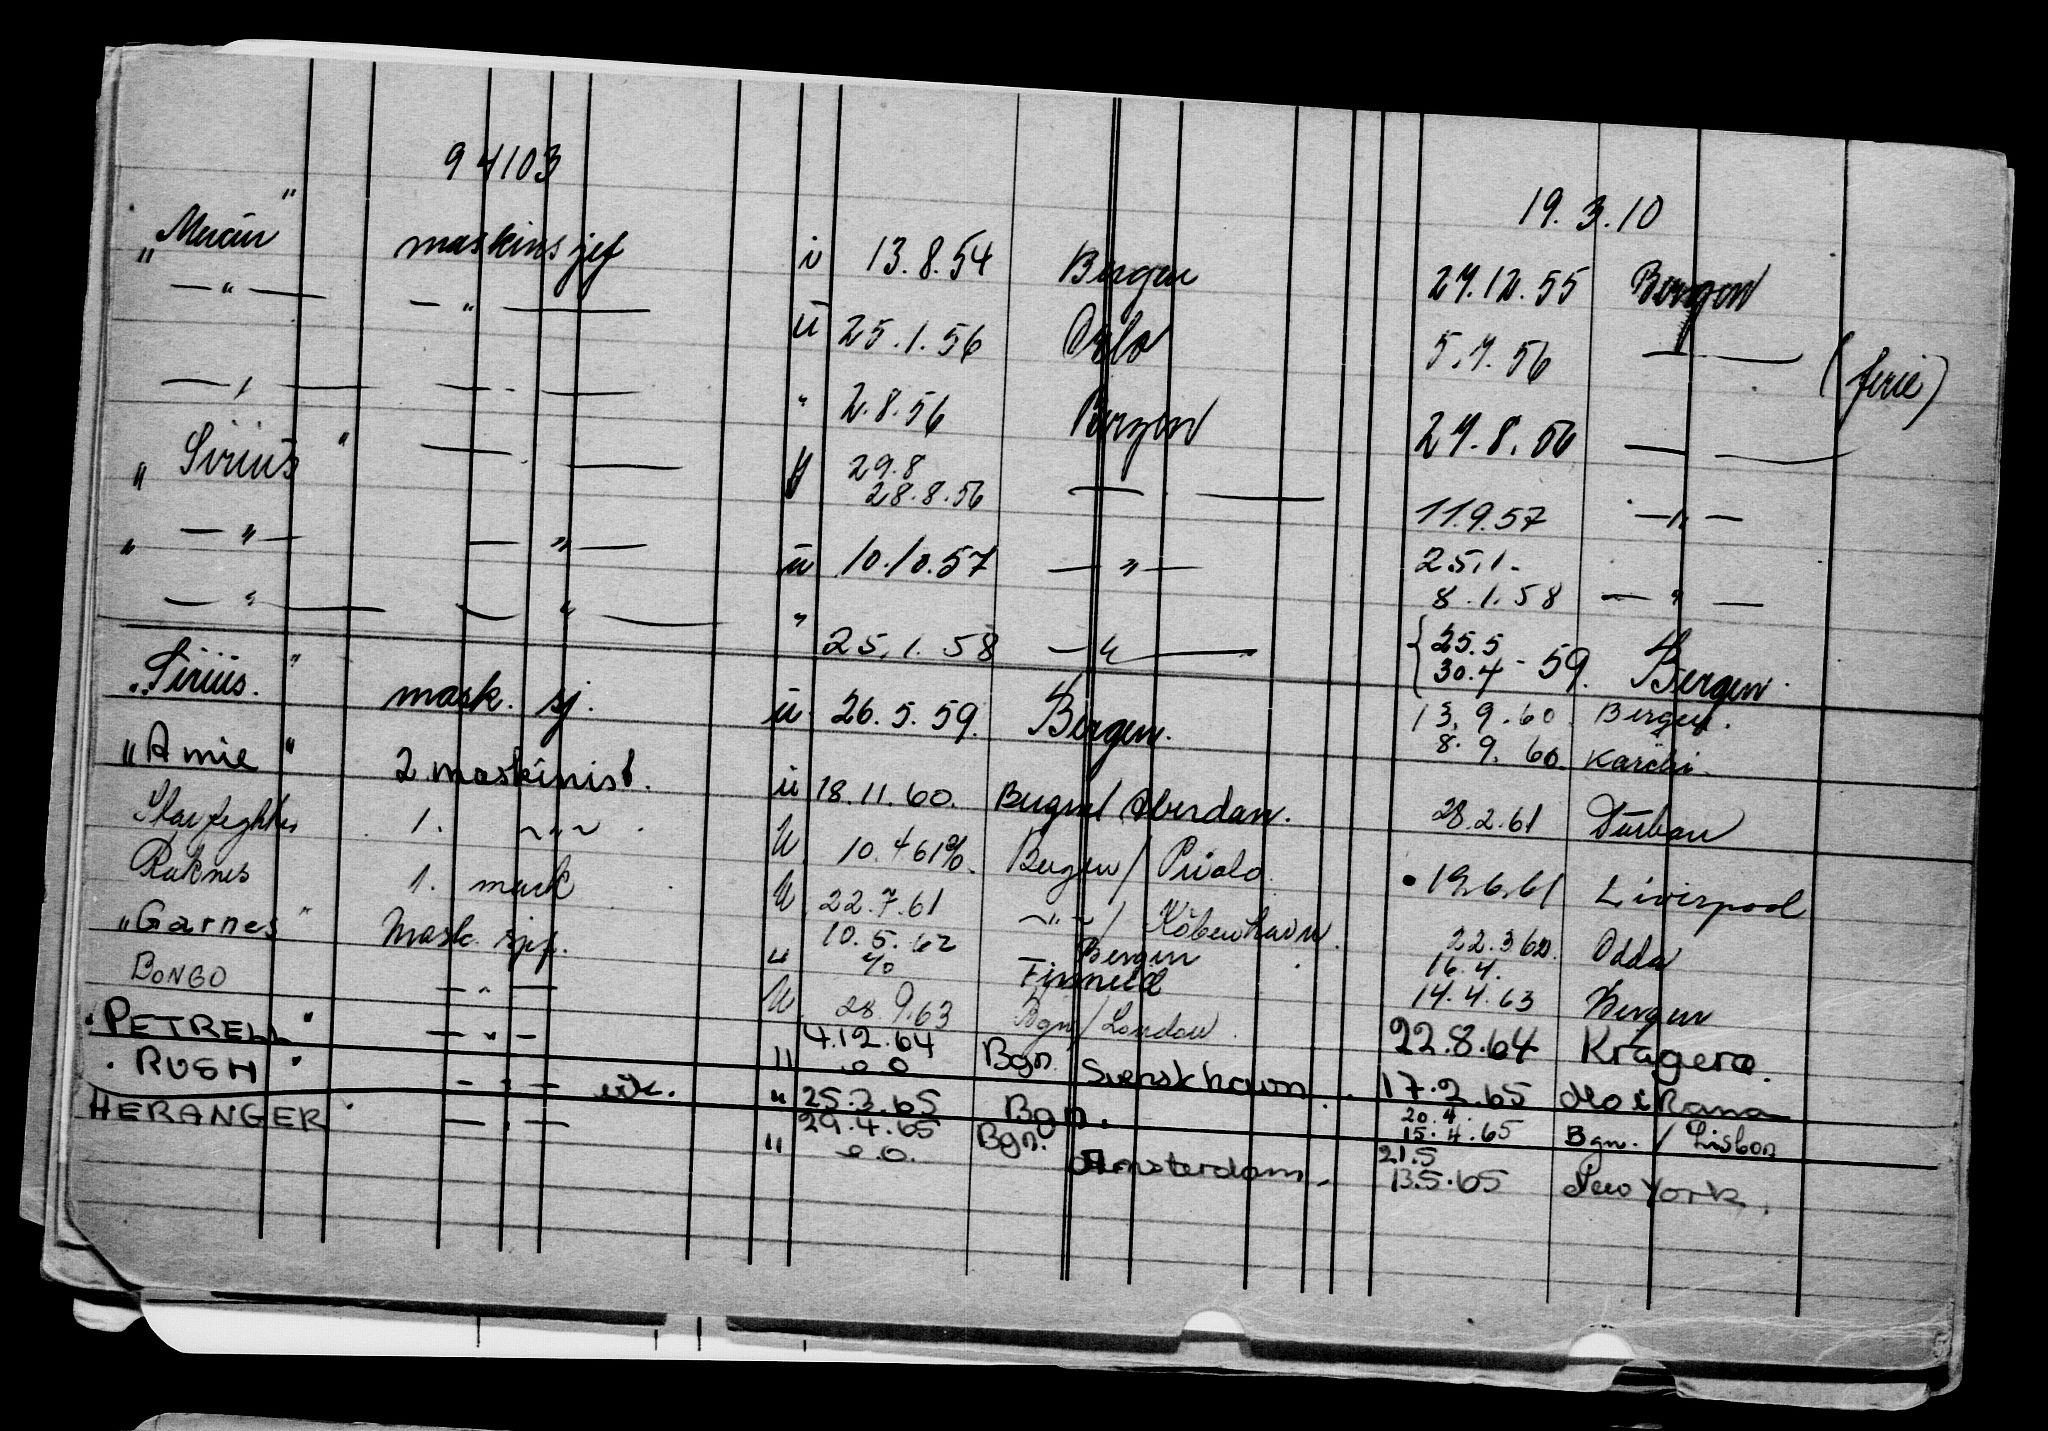 94103
19.3.10
"Mercur" maskinsjef u 13.8.54 Bergen 27.12.55 Bergen
—"— —"— u 25.1.56 Oslo 5.7.56 —"— (ferie)
—"— —"— " 2.8.56 Bergen 27.8.56 —"—
"Sirius" —"— 29.8
28.8.56 —"— 11.9.57 —"—
" —"— —"— u 10.10.57 —"— 25.1.
8.1.58 —"—
—"— —"— " 25.1.58 —"— { 25.5
30.4 - 59. Bergen.
"Sirius." mask. sj. u 26.5.59. Bergen. 13.9.60. Bergen.
8.9.60. Karachi.
"Amie" 2 maskinist. u 18.11.60. Bergen/Aberdan. 28.2.61 Durban
Starfighter 1. ~"~ . U. 10.4 61 %. Bergen / 19.6.61 Liverpool
Raknes 1. mask U 22.7.61 ~"~ / København. 22.3 62. Odda
"Garnes" Mask. sjef. " 10.5.62
%o Bergen
Finneid 16.4.
14.4.63 Bergen
BONGO —"— U. 28.9.63 Bgn / London. 22.8.64 Kragerø.
"PETRELL" —"— " 4.12.64
e o Bgn. Svenskhavn. 17.2.65 Mo i Rana
"RUSH" —"— vik. " 25.3.65 Bgn. 20.4.
15.4.65 Bgn. / Lisbon
HERANGER" —"— " 29.4.65
e.o. Bgn. Amsterdam. 21.5
13.5.65 New York.